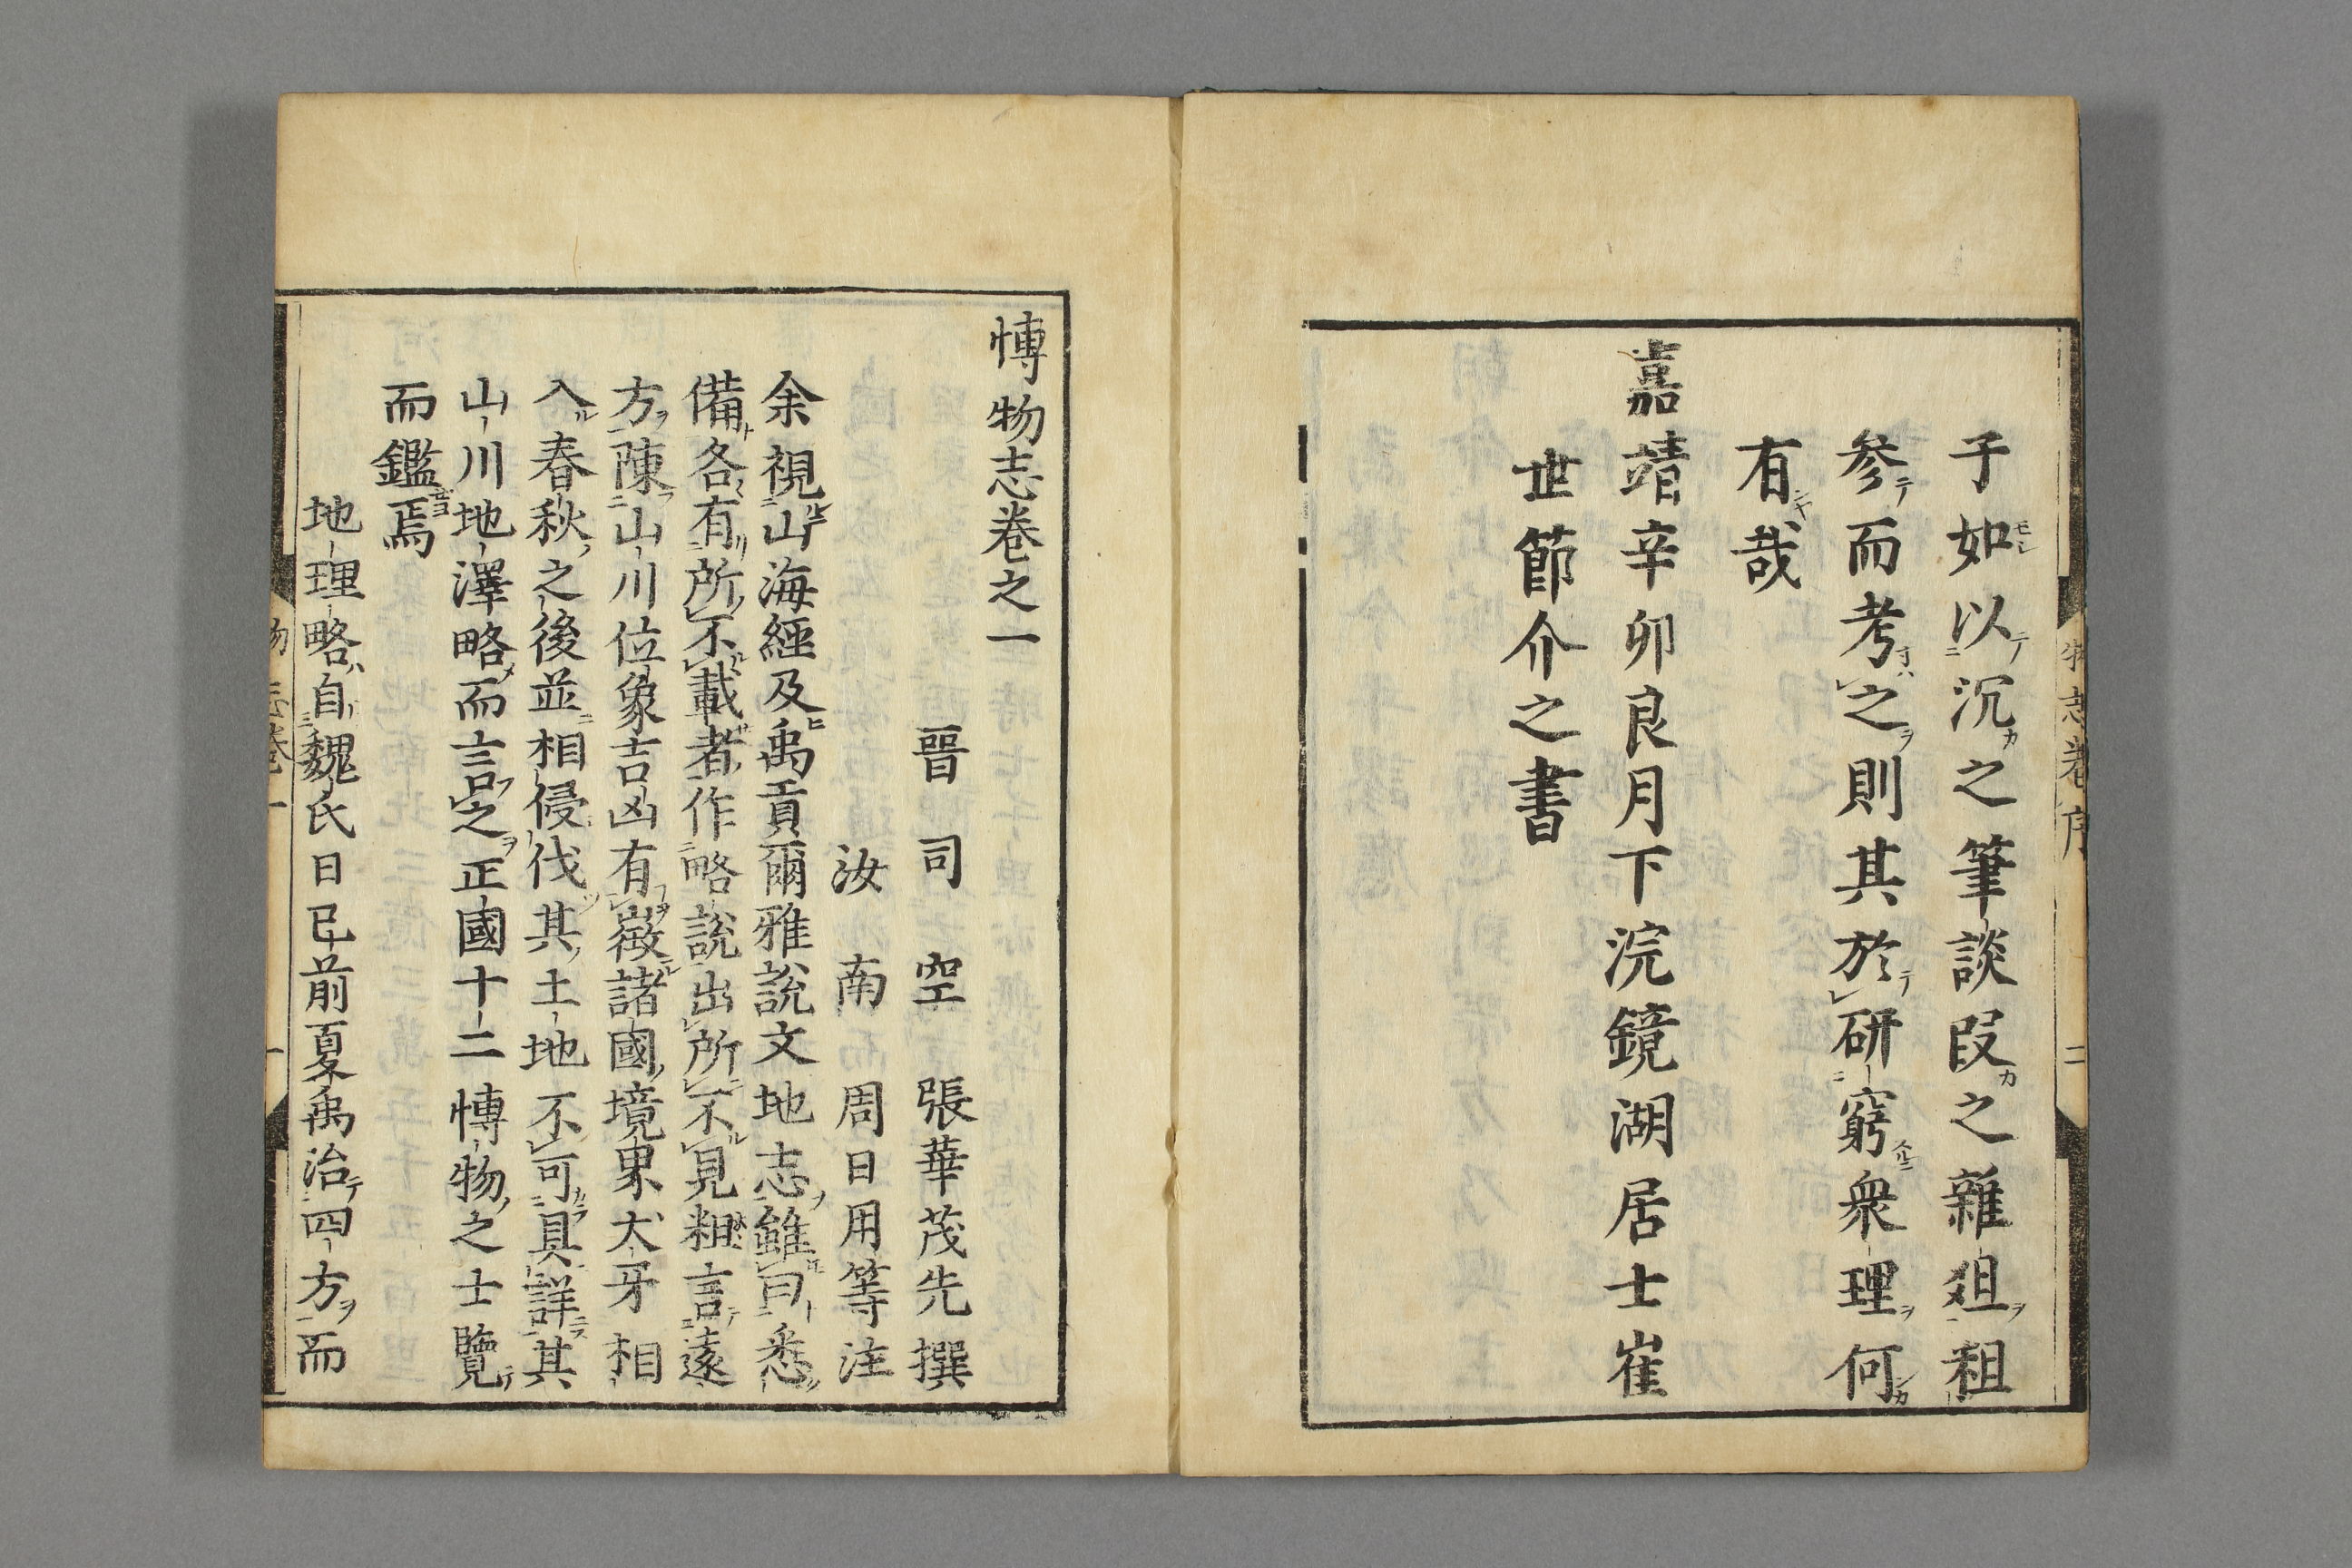 子如以沉之筆談段之雜俎租
参而考之則其於研窮衆理何
有哉
嘉靖辛卯良月下浣鏡湖居士崔
世節介之書
物志卷序
二
博物志卷之一
晉司空張華茂先撰
汝南周日用等注
余視山海經及禹貢爾雅說文地志雖曰悉
備各有所不載者作略說出所不見粗言遠
方陳山川位象吉凶有徴諸國境界犬牙相
入春秋之後並相侵伐其土地不可具詳其
山川地澤略而言之正國十二博物之士覽
而鑑焉
地理略自魏氏日已前夏禹治四方而
物志卷一
一